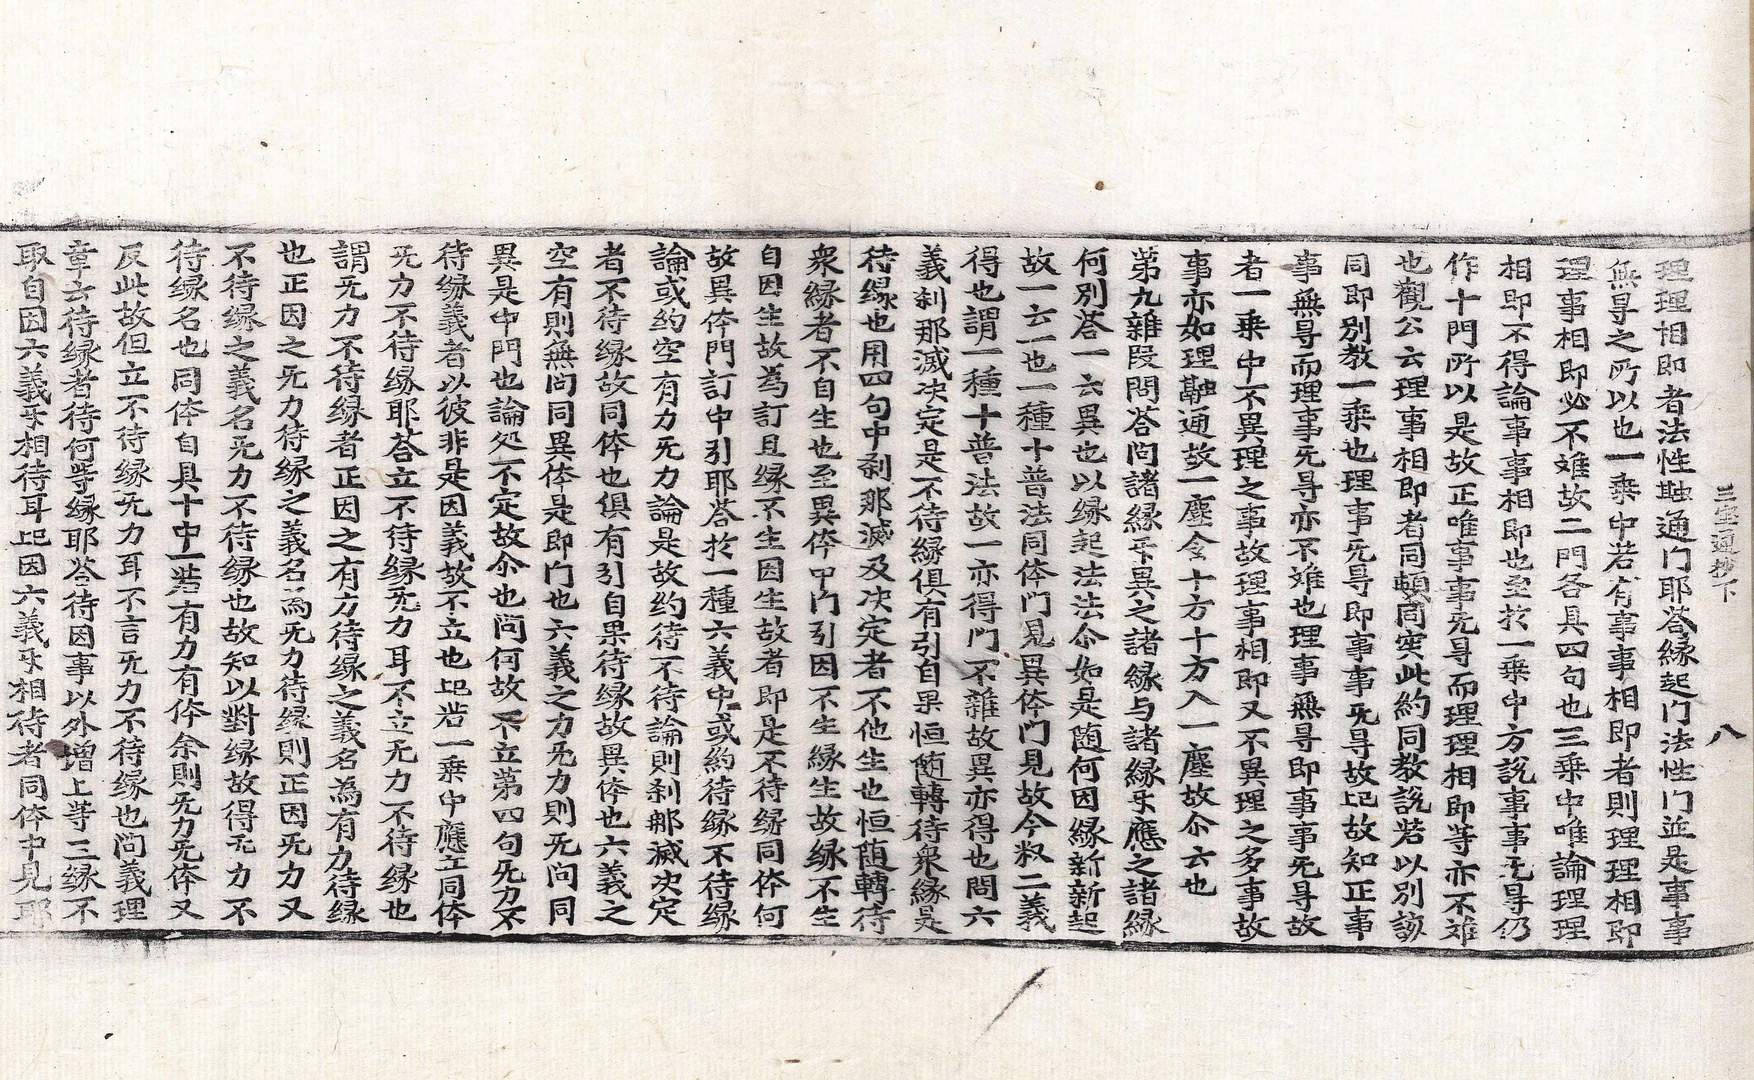 三宝通抄下 八
理理相即者法性融通门耶荅縁起门法性门並是事事
無㝵之所以也一乗中若有事事相即者則理理相即
理事相即必不难故二門各具四句也三乗中唯論理理
相即不得論事事相即也至於一乗中方説事事无㝵仍
作十門所以是故正唯事事无㝵而理理相即等亦不难
也觀公云理事相即者同頓同実此約同教説若以別該
同即別教一乗也理事无㝵即事事无㝵故記故知正事
事無㝵而理事无㝵亦不难也理事無㝵即事事无㝵故
者一乗中不異理之事故理事相即又不異理之多事故
事亦如理融通故一塵含十方十方入一塵故尒云也
苐九雜叚問荅问諸縁㸦異之諸縁与諸縁㸦應之諸縁
何別荅一云異也以縁起法法尒如是随何因縁新新起
故一云一也一種十普法同体门見異体门見故今叔二義
得也謂一種十普法故一亦得门不雜故異亦得也問六
義刹那滅决定是不待縁俱有引自果恒随轉待衆縁是
待縁也用四句中刹那滅及决定者不他生也恒随轉待
衆縁者不自生也至異体中门引因不生縁生故縁不生
自因生故為訂且縁不生因生故者即是不待縁同体何
故異体門訂中引耶荅於一種六義中或約待縁不待縁
論或約空有力无力論是故約待不待論則刹那滅决定
者不待縁故同体也俱有引自果待縁故異体也六義之
空有則無问同異体是即门也六義之力无力則无问同
異是中門也論処不定故尒也问何故不立苐四句无力不
待縁義者以彼非是因義故不立也記若一乗中應立同体
无力不待縁耶荅立不待縁无力耳不立无力不待縁也
謂无力不待縁者正因之有力待縁之義名為有力待縁
也正因之无力待縁之義名為无力待縁則正因无力又
不待縁之義名无力不待縁也故知以對縁故得无力不
待縁名也同体自具十中一若有力有体余則无力无体又
反此故但立不待縁无力耳不言无力不待縁也问義理
章云待縁者待何等縁耶荅待因事以外增上等三縁不
取自因六義㸦相待耳記因六義㸦相待者同体中見耶